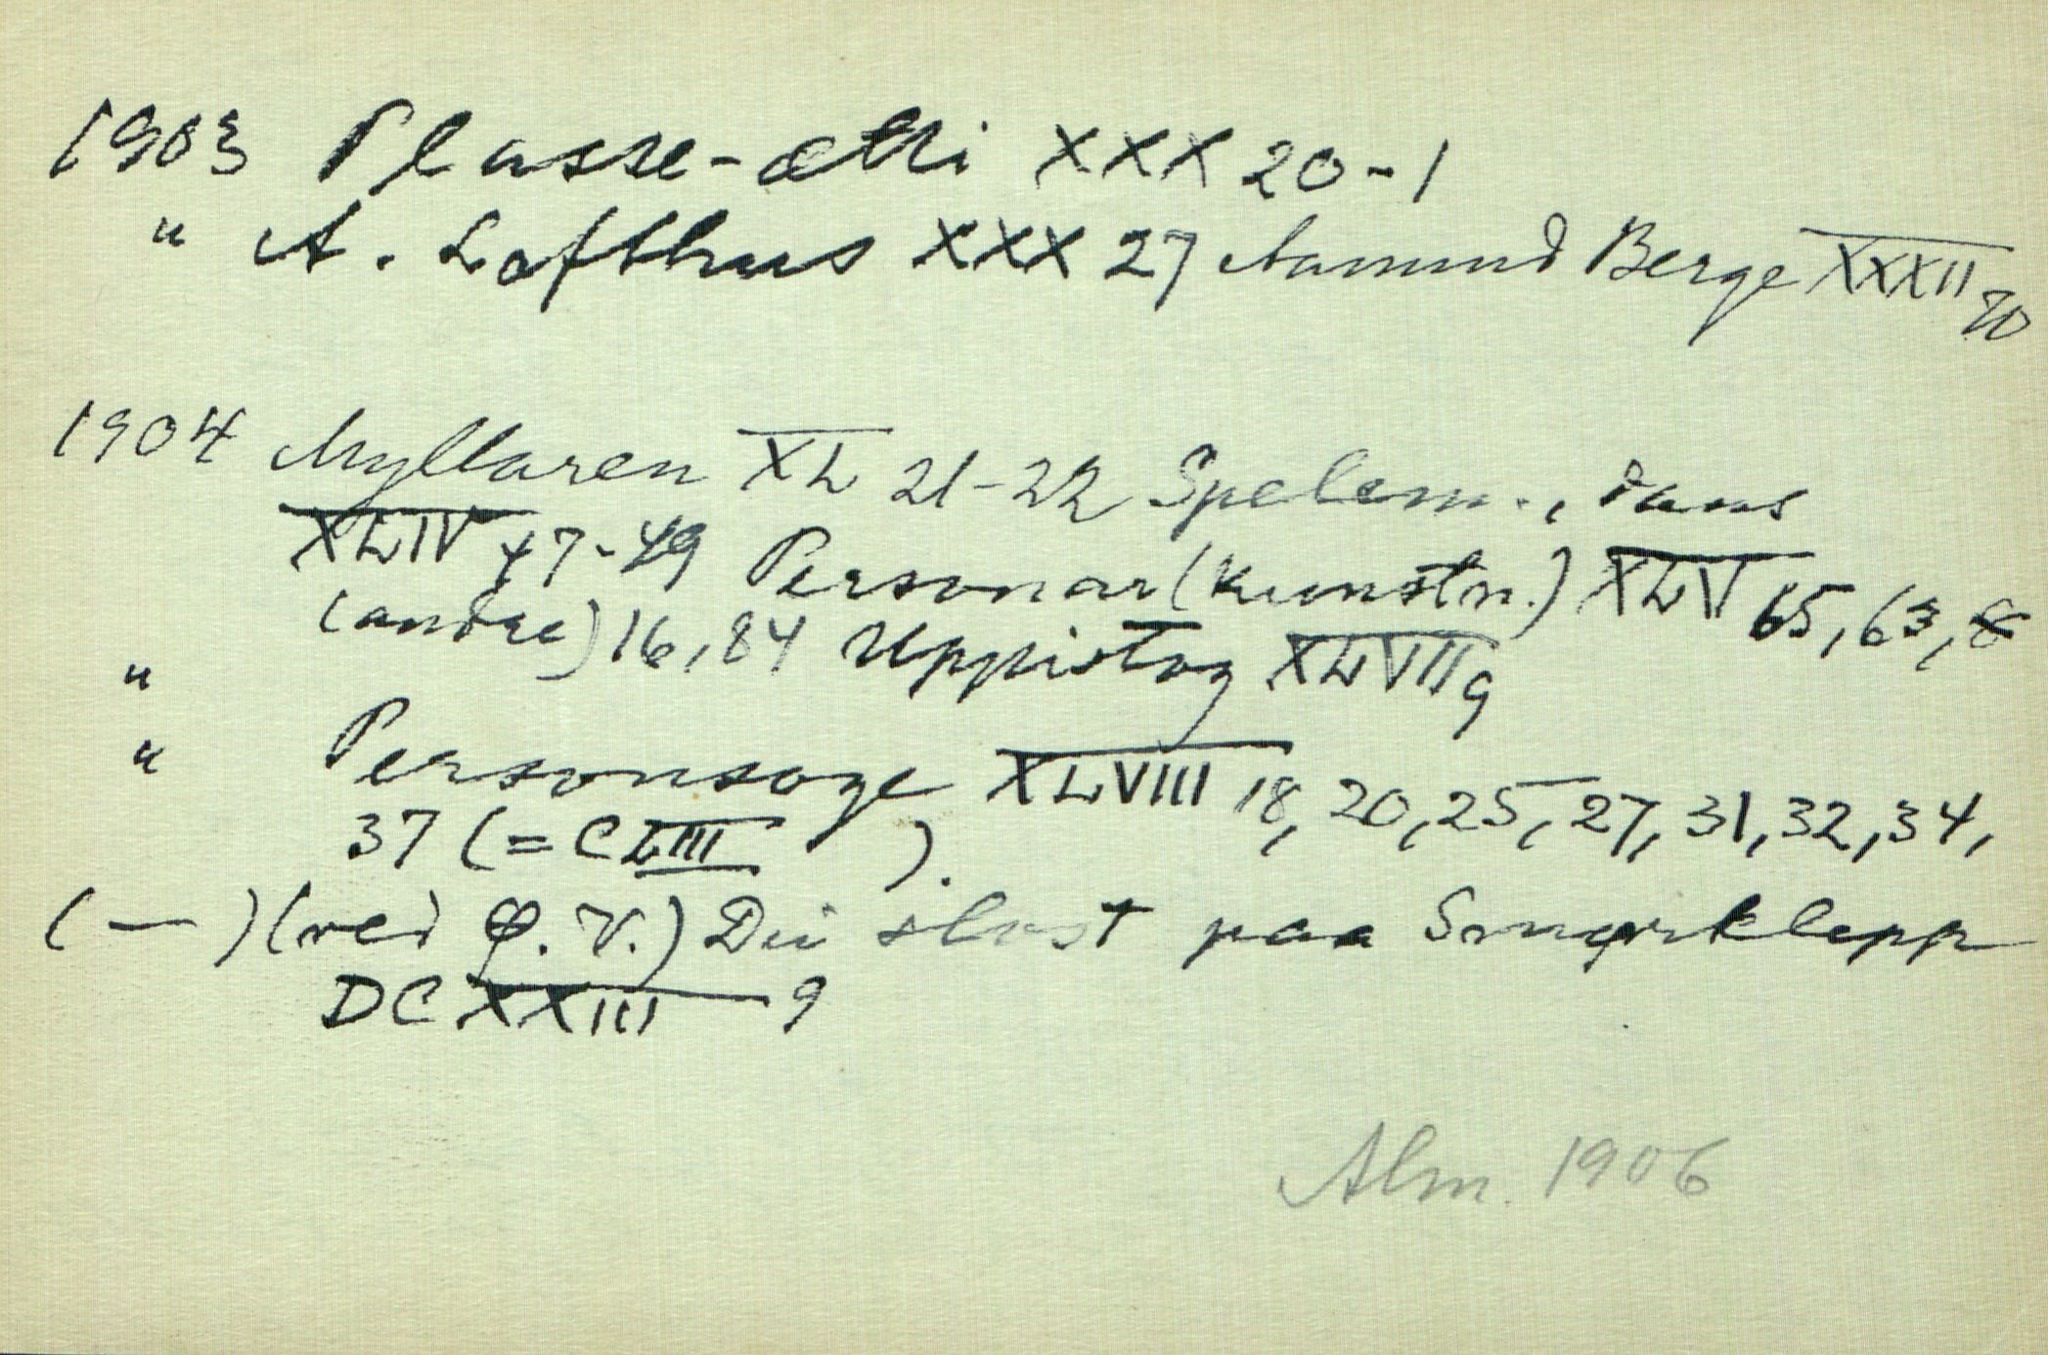 1903 Plasse-ætti XXX 20-1
" A. Lofthus XXX 27 Aamund Berge XXXII 70
1904 Myllaren XL 21-22 Spelem., dans
XLIV 47-49 Personar (kunstn.) XLV 65, 63, 8
(andre) 16, 84 Uppistog XLVII 9
"
" Personsoge XLVIII 18, 20, 25, 27, 31, 32, 34,
37 (= CLIII ).
(—) (ved Ø. V.) Dei slost paa Smørklepp
DCXXIII 9
Alm. 1906